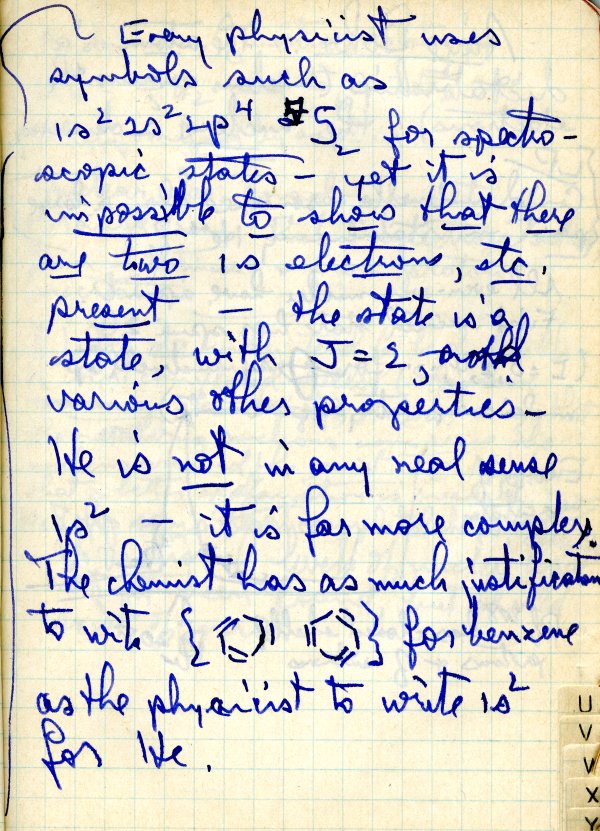 Every physicist uses
symbols such as
1s² 2s² 2p⁴ ⁵S₂ for spectro-
scopic states – yet it is
impossible to show that there
are two 1s electrons, etc.
present – the state is a
state, with J = 2, and
various other properties –
He is not in any real sense
1s² – it is far more complex.
The chemist has as much justification
to write { } for benzene
as the physicist to write 1s²
for He.
U
V
W
X
Y